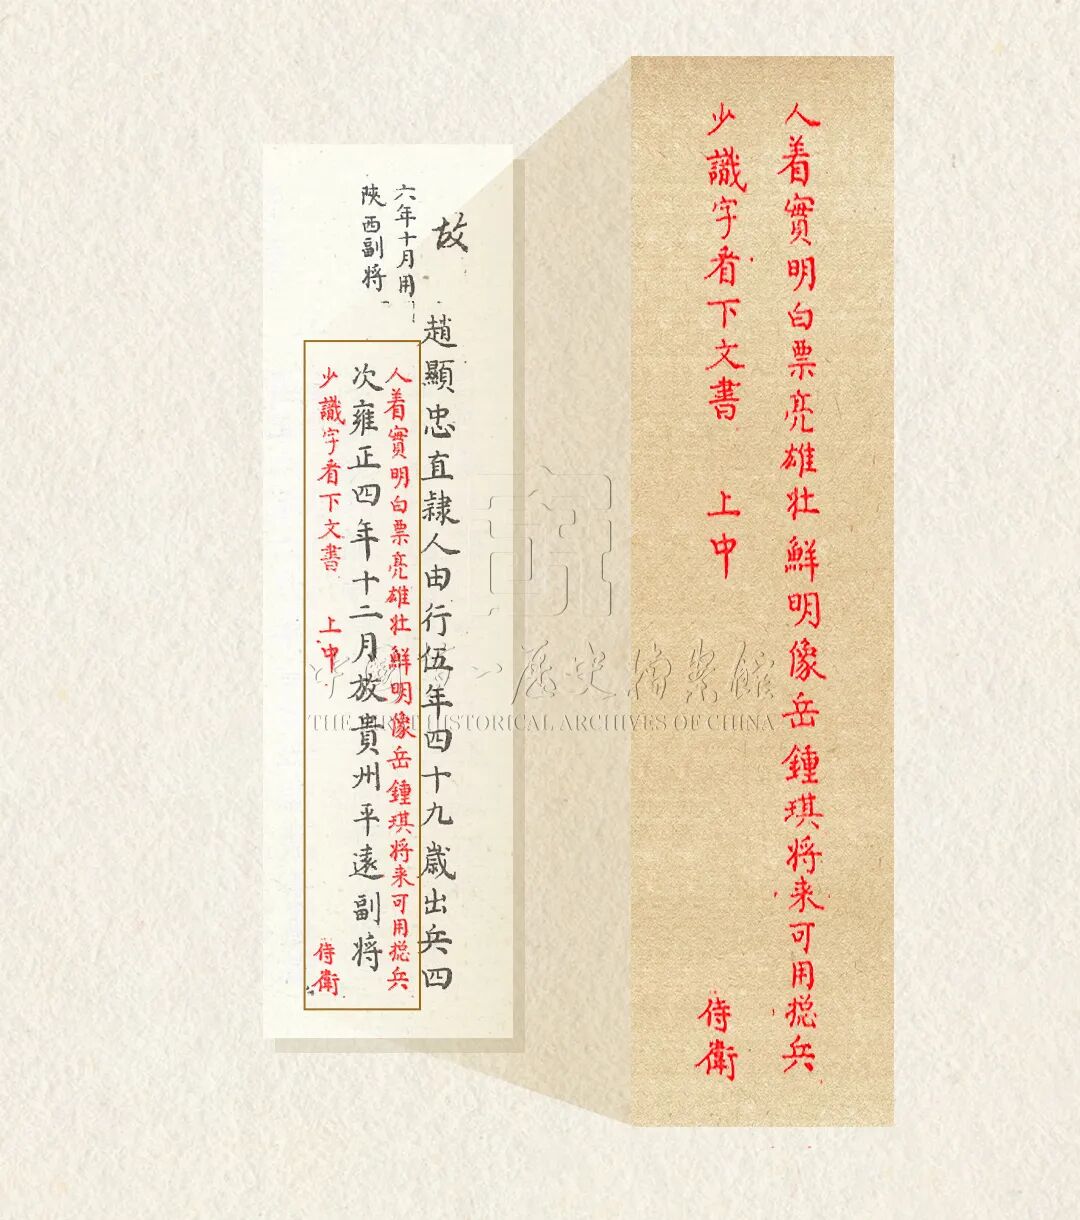 故
趙顯忠直隸人由行伍年四十九歲出兵四
次雍正四年十二月放貴州平遠副將
六年十月用
陝西副將
人着實明白票亮雄壯鮮明像岳鍾琪將来可用捴兵
少識字看下文書 上中 侍衛
人着實明白票亮雄壯鮮明像岳鍾琪將来可用捴兵
少識字看下文書 上中 侍衛
中國第一歷史檔案館
THE FIRST HISTORICAL ARCHIVES OF CHINA